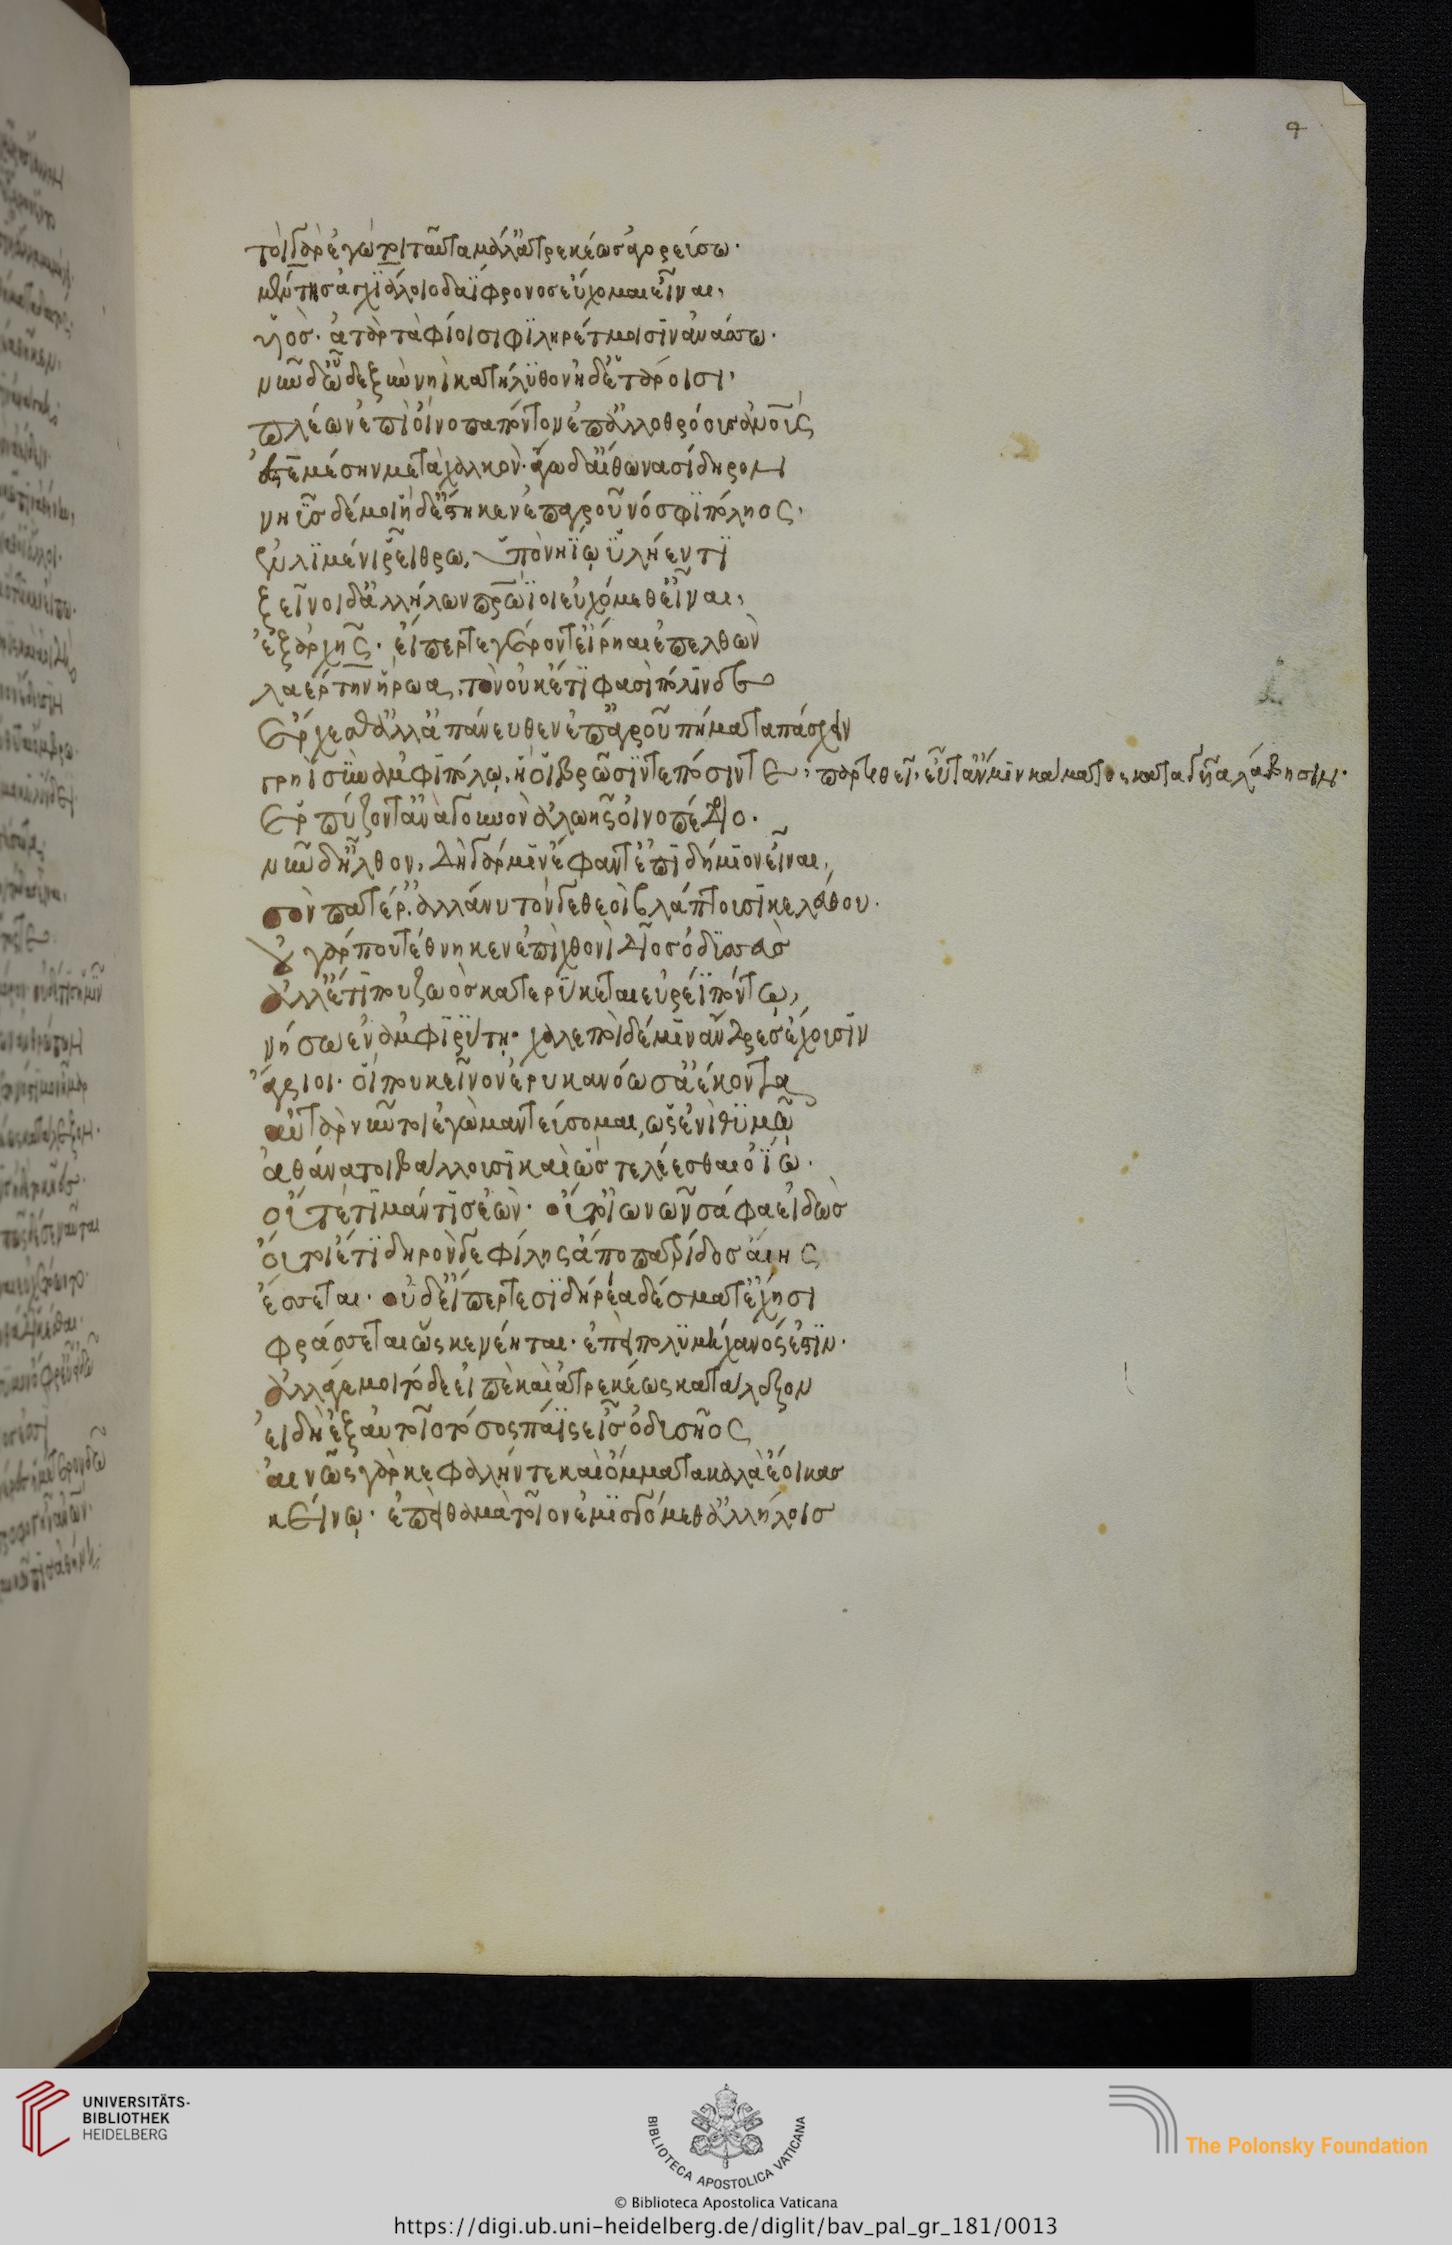 4
τοὶ γὰρ ἐγώ τοι ταῦτα μάλ' ἀτρεκέως ἀγορεύσω·
μέντης ἀγχϊάλοιο δαΐφρονος εὔχομαι εἶναι,
ϋἱός· ἀτὰρ ταφίοισι φϊληρέτμοισιν ἀνάσσω·
νῦν δ' ὧδε ξὺν νηῒ κατήλυθον ἠδ' ἑτάροισι·
πλέων ἐπὶ οἴνοπα πόντον ἐπ' ἀλλοθρόους ἀνθρώπους
ἐς τεμέσην μετὰ χαλκόν· ἄγω δ' αἴθωνα σίδηρον
νηῦς δέ μοι ἥδ' ἕστηκεν ἐπ' ἀγροῦ νόσφϊ πόληος·
λϊμένι ῥείθρω, ὑπὸ νηΐῳ ὑλήεντϊ
ξεῖνοι δ' ἀλλήλων πατρώϊοι εὐχόμεθ' εἶναι,
ἐξ ἀρχῆς· εἴπερ τε γέροντ' εἴρηαι ἐπελθὼν
λαέρτην ἥρωα, τὸν οὐκέτϊ φασὶ πόλινδε
ἔρχεσθ' ἀλλ' ἀπάνευθεν ἐπ' ἀγροῦ πήματα πάσχειν
γρηῒ σὺν ἀμφιπόλῳ, ἥ οἱ βρῶσίν τε πόσιν τε, παρτιθεῖ, εὖτ' ἄν μιν κάματος κατὰ γυῖα λάβησιν·
ἑρπύζοντ' ἀνὰ γουνὸν ἀλωῆς οἰνοπέδοιο·
νῦν δ' ἦλθον, δὴ γάρ μιν ἔφαντ' ἐπιδήμιον εἶναι,
σὸν πατέρ' ἀλλά νυ τόνδε θεοὶ βλάπτουσι κελεύθου·
οὐ γάρ που τέθνηκεν ἐπὶ χθονὶ δῖος ὀδϋσσεὺς
ἀλλ' ἔτι που ζωὸς κατερύκεται εὐρέϊ πόντῳ,
νήσω ἐν ἀμφιρύτη· χαλεποὶ δέ μιν ἄνδρες ἔχουσιν
ἄγριοι· οἵ που κεῖνον ἐρυκανόωσ' ἀέκοντα
αὐτὰρ νῦν τοι ἐγὼ μαντεύσομαι, ὡς ἐνὶ θυμῷ
ἀθάνατοι βάλλουσι καὶ ὡς τελέεσθαι ὀΐω·
οὔτέ τι μάντις ἐών· οὔτ' οἰωνῶν σάφα εἰδώς
οὔ τοι ἔτϊ δηρόν γε φίλης ἀπὸ πατρίδος αἴης
ἔσσεται· οὐδ' εἴπερ τε σϊδήρεα δέσματ' ἔχησι
φράσσεται ὥς κε νέηται· ἐπεὶ πολϋμήχανός ἐστιν·
ἀλλ' ἄγε μοι τόδε εἰπὲ καὶ ἀτρεκέως κατάλεξον
εἰ δὴ ἐξ αὐτοῖο τόσος πάϊς εἶς ὀδυσῆος
αἰνῶς γὰρ κεφαλήν τε καὶ ὄμματα καλὰ ἔοικας
κείνῳ· ἐπεὶ θαμὰ τοῖον ἐμισγόμεθ' ἀλλήλοισ
UNIVERSITÄTS-
BIBLIOTHEK
HEIDELBERG
BIBLIOTECA APOSTOLICA VATICANA
The Polonsky Foundation
© Biblioteca Apostolica Vaticana
https://digi.ub.uni-heidelberg.de/diglit/bav_pal_gr_181/0013